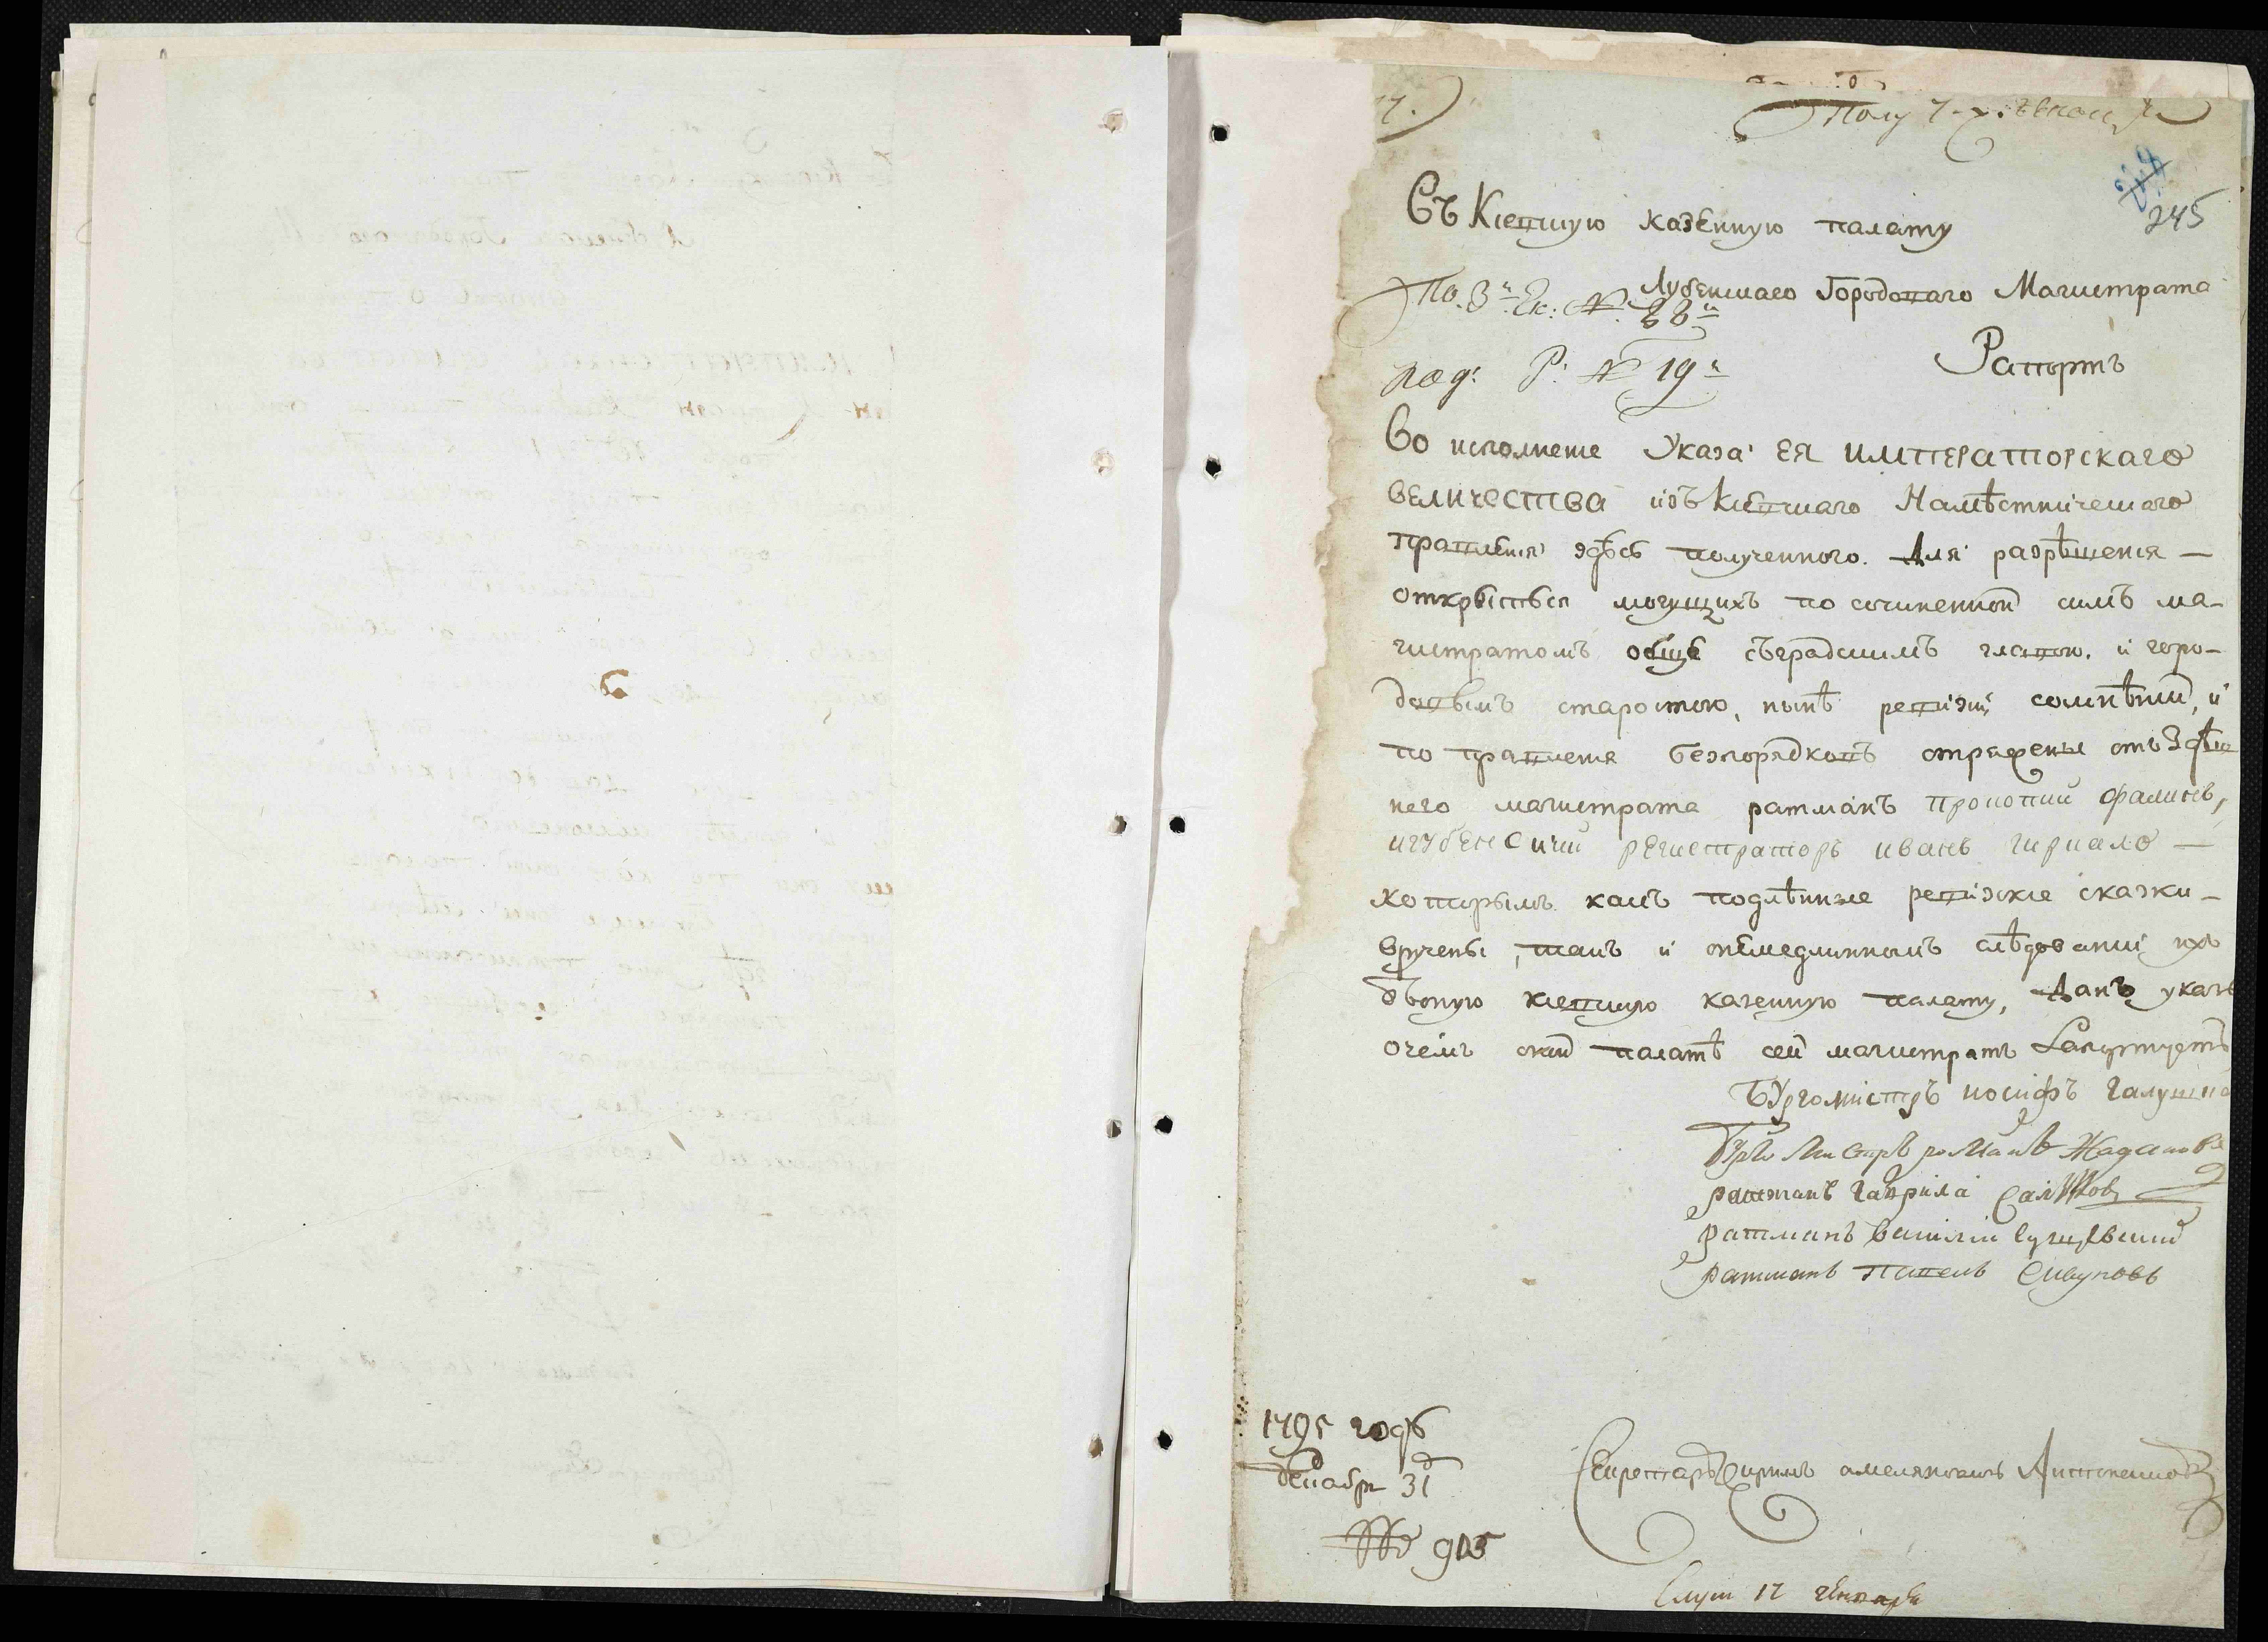 245
Съ Киевскую казенную палату
Лубенскаго Городоваго Магистрата
По 3й Эк: №
Рапортъ
P: № 19й
Во исполнение Указа ея императорскаго
величества изъ Киевскаго Намѣстническаго
правления здѣсь полученного. Для разрѣшения —
открыться могущихъ по сочиненной симъ ма-
гистратомъ обще съградскимъ главою, и горо-
довымъ старостою, нынѣ ревизии сомнѣний, и
по правления безпорядковъ отряжены отъ Здѣш
него магистрата ратманъ прокопий фалинъ,
игубенский регистраторъ иванъ гириало —
которымъ какъ подлѣнные ревизские сказки —
вручены, такъ и онемедлинномъ слѣдовании ихъ
вѣоную киевскую казенную палату, Данъ указъ
очемъ оной палатѣ сей магистратъ Рапортуетъ
Бургомистръ иосифъ Галушка
Бургомистръ романъ Жаданов
ратманъ гаврила
ратманъ василий
ратманъ павелъ
1795 годъ
декабря 31
Секретарь Кирилъ амеляновичъ
№ 905
Слуш 17 генваря